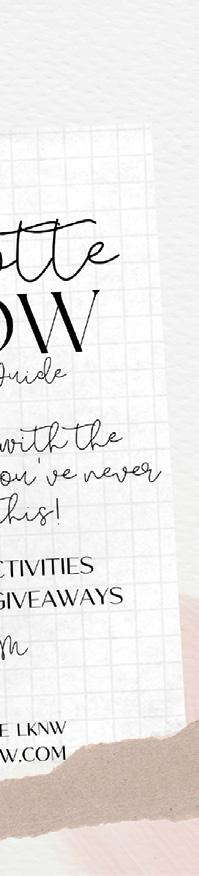 otte
OW
Guide
with the
ou've never
this!
CTIVITIES
GIVEAWAYS
M
E LKNW
W.COM